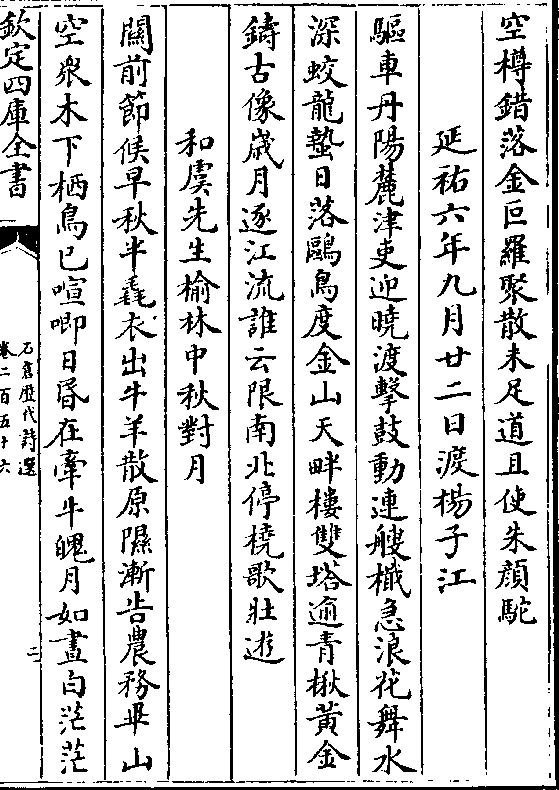 空樽錯落金叵羅聚散未足道且使朱顔駝
延祐六年九月廿二日渡楊子江
驅車丹陽麓津吏迎曉渡擊鼓動連艘檝急浪花舞水
深蛟龍蟄日落鷗鳥度金山天畔樓雙塔逾青楸黄金
鑄古像歲月逐江流誰云限南北停橈歌壯逰
和虞先生榆林中秋對月
關前節候早秋半毳衣出牛羊散原隰漸告農務畢山
空衆木下栖鳥已喧唧日昏在牽牛魄月如晝白茫茫
欽定四庫全書
石倉歴代詩選
卷二百五十六
二